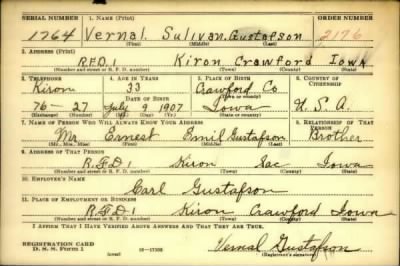 SERIAL NUMBER 1. NAME (Print) ORDER NUMBER
1764 Vernal Sulivan Gustafson 2176
(First) (Middle) (Last)
2. ADDRESS (Print)
R.F.D. 1 Kiron Crawford Iowa
(Number and street or R. F. D. number) (Town) (County) (State)
3. TELEPHONE 4. AGE IN YEARS 5. PLACE OF BIRTH 6. COUNTRY OF CITIZENSHIP
Kiron 33 Crawford Co
DATE OF BIRTH
76-27 July 9 1907 Iowa U.S.A.
(Exchange) (Number) (Mo.) (Day) (Yr.) (State or country)
7. NAME OF PERSON WHO WILL ALWAYS KNOW YOUR ADDRESS 8. RELATIONSHIP OF THAT PERSON
Mr Ernest Emil Gustafson Brother
(Mr., Mrs., Miss) (First) (Middle) (Last)
9. ADDRESS OF THAT PERSON
R.F.D. 1 Kiron Sac Iowa
(Number and street or R. F. D. number) (Town) (County) (State)
10. EMPLOYER'S NAME
Carl Gustafson
11. PLACE OF EMPLOYMENT OR BUSINESS
R.F.D. 1 Kiron Crawford Iowa
(Number and street or R. F. D. number) (Town) (County) (State)
I AFFIRM THAT I HAVE VERIFIED ABOVE ANSWERS AND THAT THEY ARE TRUE.
REGISTRATION CARD
D. S. S. Form 1 Vernal Gustafson
(over) (Registrant's signature)